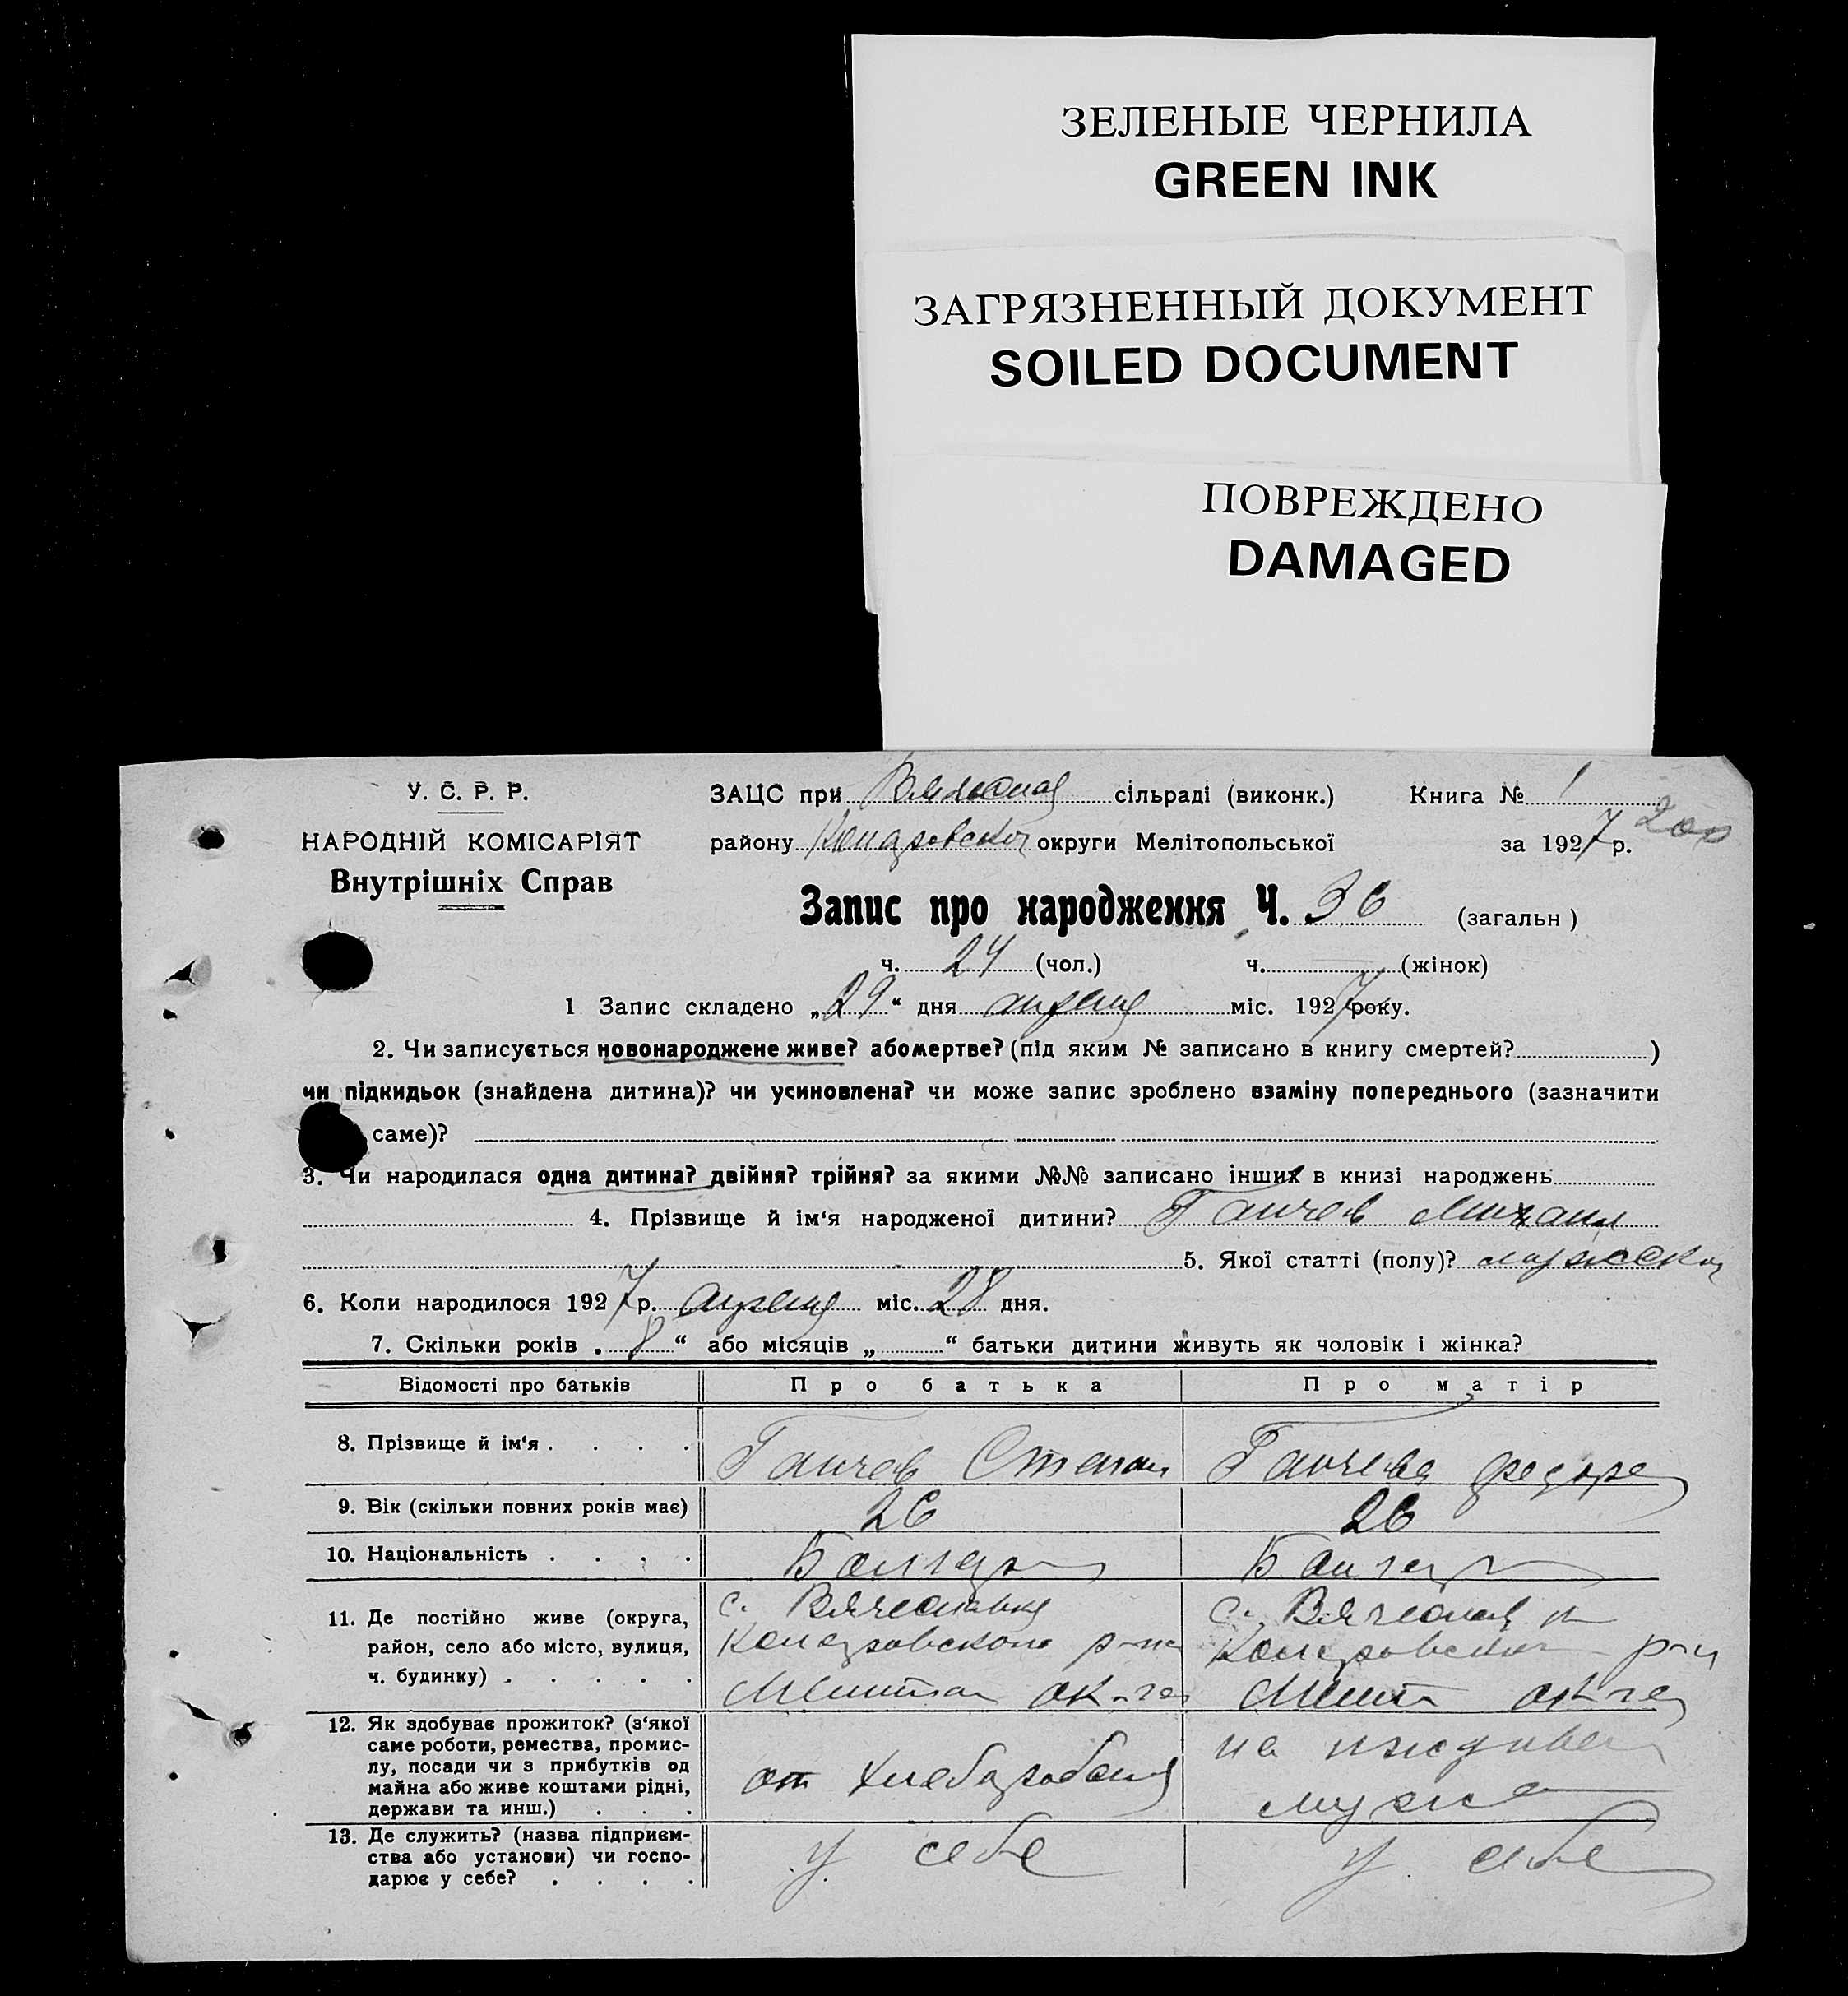 ЗЕЛЕНЫЕ ЧЕРНИЛА
GREEN INK
ЗАГРЯЗНЕННЫЙ ДОКУМЕНТ
SOILED DOCUMENT
ПОВРЕЖДЕНО
DAMAGED
У. С. Р. Р.
НАРОДНІЙ КОМІСАРІЯТ
Внутрішніх Справ
ЗАЦС при сільраді (виконк.) Книга № 1
району округи Мелітопольської за 1927 р. 200
Запис про народження Ч. 36 (загальн)
ч. 24 (чол.) ч. — (жінок)
1 Запис складено „29“ дня апреля міс. 1927 року.
2. Чи записується новонароджене живе? або мертве? (під яким № записано в книгу смертей? )
чи підкидьок (знайдена дитина)? чи усиновлена? чи може запис зроблено взаміну попереднього (зазначити
саме)?
3. Чи народилася одна дитина? двійня? трійня? за якими №№ записано інших в книзі народжень
4. Прізвище й ім‘я народженої дитини? Ганчев Михаил
5. Якої статті (полу)? мужской
6. Коли народилося 1927 р. апреля міс. 28 дня.
7. Скільки років „8“ або місяців „ “ батьки дитини живуть як чоловік і жінка?
Відомості про батьків Про батька Про матір
8. Прізвище й ім‘я . . . . Ганчев Степан Ганчева
9. Вік (скільки повних років має) 26 26
10. Національність . . . . Болгар Болгар
11. Де постійно живе (округа,
район, село або місто, вулиця,
ч. будинку) . . . . .
с. Вячеславка
Коларовского р-на
Мелитоп ок-га
с. Вячеславка
р-на
Мелит ок-га
12. Як здобуває прожиток? (з‘якої
саме роботи, ремества, промис-
лу, посади чи з прибутків од
майна або живе коштами рідні,
держави та инш.) . . .
от хлебаробства
на иждивен
мужа
13. Де служить? (назва підприєм-
ства або установи) чи госпо-
дарює у себе? . . . .
у себе
у себе